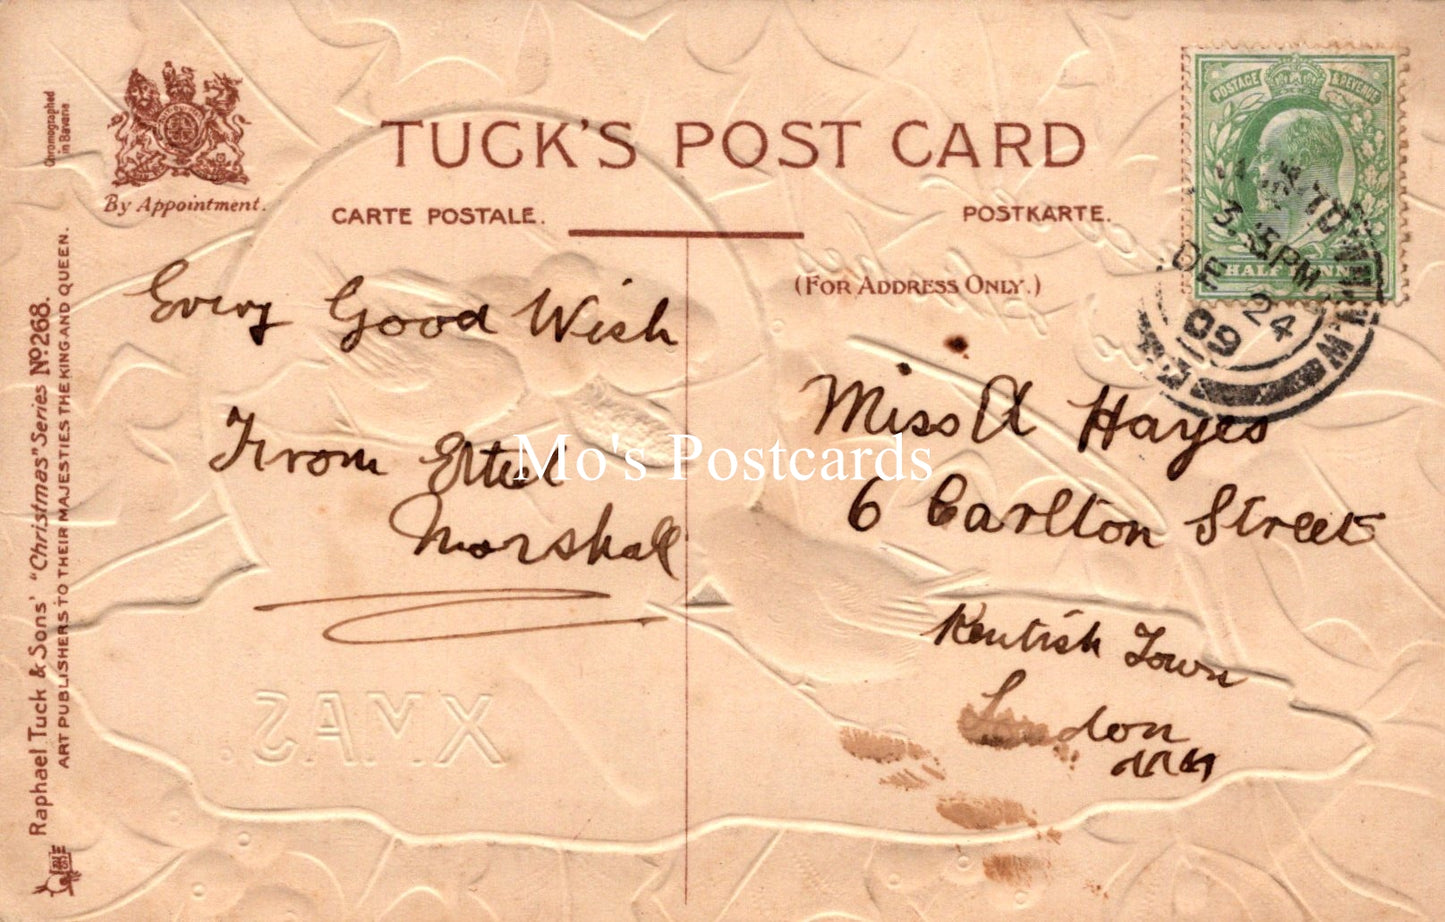 TUCK'S POST CARD
CARTE POSTALE.
POSTKARTE.
(FOR ADDRESS ONLY.)
By Appointment.
Chromographed
in Bavaria
Raphael Tuck & Sons' "Christmas" Series No 268.
ART PUBLISHERS TO THEIR MAJESTIES THE KING AND QUEEN.
POSTAGE & REVENUE
HALF PENNY
3.15PM
DE 24
09
Every Good Wish
From
Marshall
Miss A Hayes
6 Carlton Street
Kentish Town
London
N.W
XMAS.
Mo's Postcards